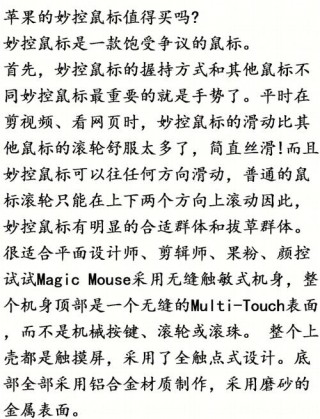 苹果的妙控鼠标值得买吗?
妙控鼠标是一款饱受争议的鼠标。
首先，妙控鼠标的握持方式和其他鼠标不
同妙控鼠标最重要的就是手势了。平时在
剪视频、看网页时，妙控鼠标的滑动比其
他鼠标的滚轮舒服太多了，简直丝滑!而且
妙控鼠标可以往任何方向滑动，普通的鼠
标滚轮只能在上下两个方向上滚动因此，
妙控鼠标有明显的合适群体和拔草群体。
很适合平面设计师、剪辑师、果粉、颜控
试试Magic Mouse采用无缝触敏式机身，整
个机身顶部是一个无缝的Multi-Touch表面
，而不是机械按键、滚轮或滚珠。 整个上
壳都是触摸屏，采用了全触点式设计。底
部全部采用铝合金材质制作，采用磨砂的
金属表面。